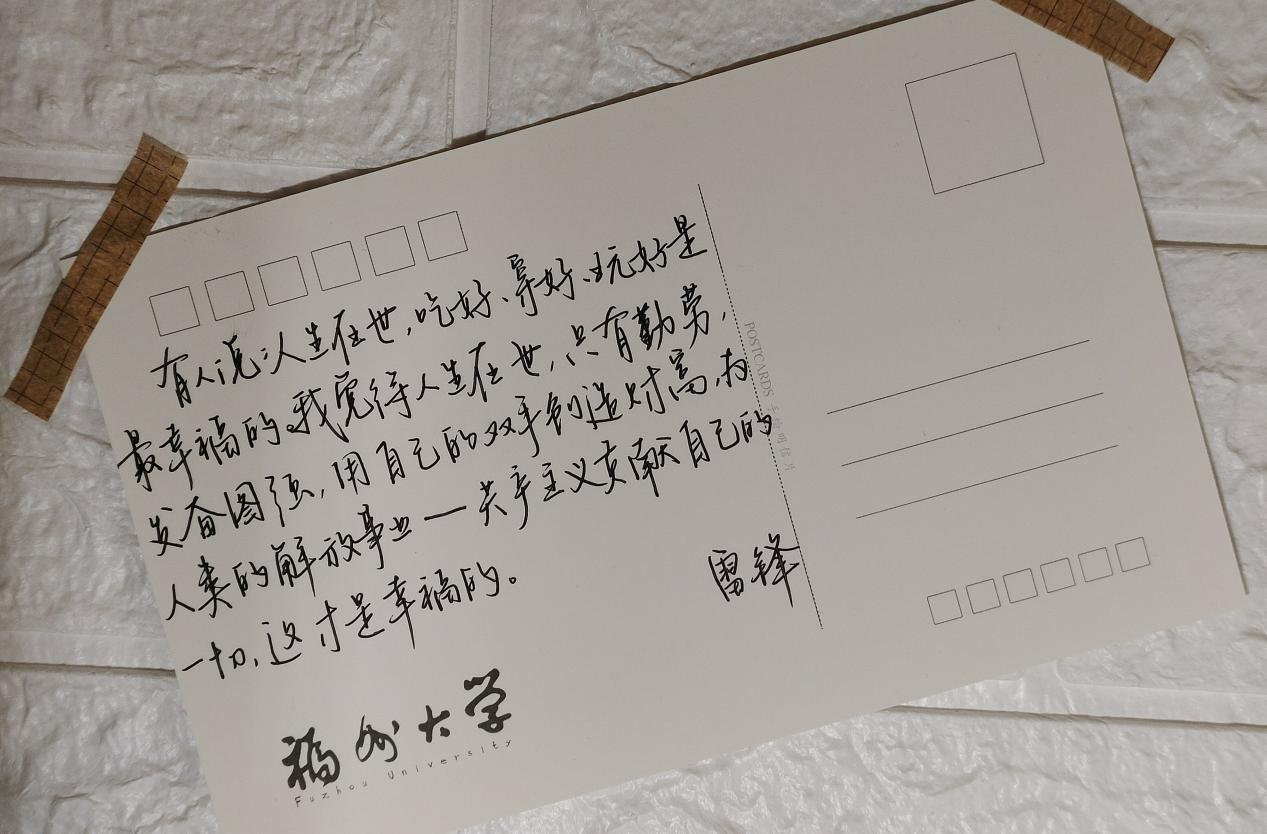 有人说:人生在世,吃好、穿好、玩好是
最幸福的。我觉得人生在世,只有勤劳,
发奋图强,用自己的双手创造财富,为
人类的解放事业一共产主义贡献自己的
一切,这才是幸福的。
雷锋
福州大学
Fuzhou University
POSTCARDS 手绘明信片